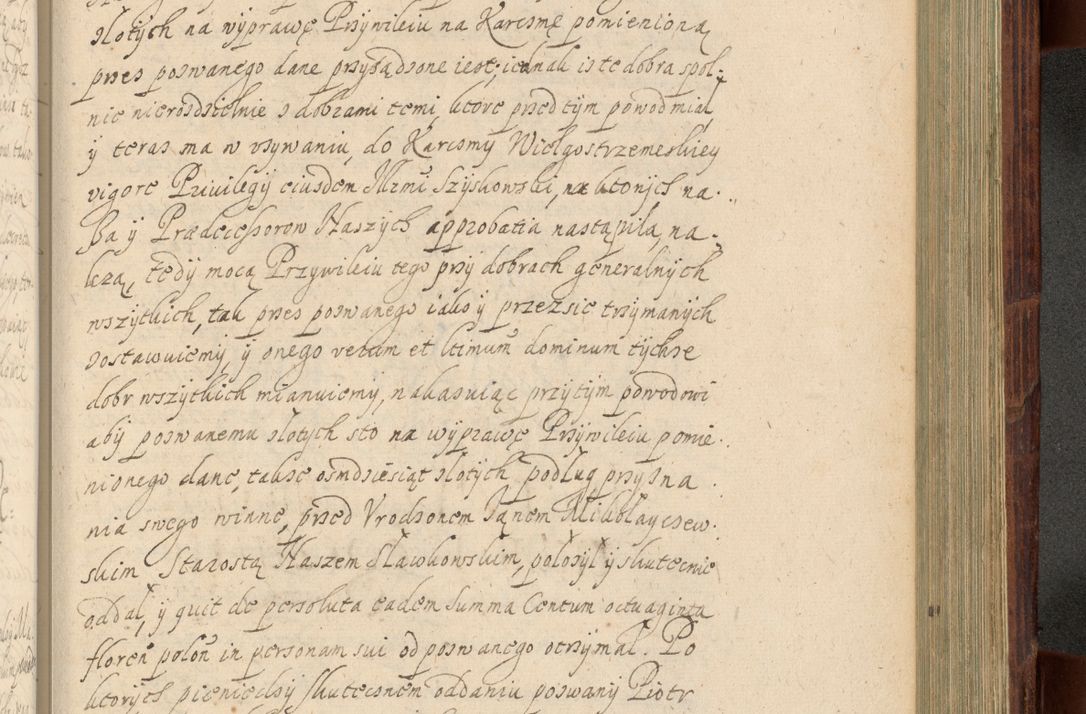 złotych na wyprawę Przywileiu na Karczmę pomienioną
przez pozwanego dane przysądzone iest, iednak iż te dobra spol-
nie nierozdzielnie z dobrami temi, ktore przed tym powod miał
y teraz ma w vżywaniu, do Karczmy Wielgostrzemeskiey
vigore Priuilegij eiusdem Illmi Szyszkowski, na ktorych na-
ßa y Prædecessorow Naszych approbatia nastąpiła, na-
leżą, tedy mocą Przywileiu tego przy dobrach generalnych
wszytkich, tak przez pozwanego iako y przezsię trzymanych
zostawuiemy, y onego verum et ltimum dominum tychże
dobr wszytkich mianuiemy, nakazuiąc przytym powodowi
aby pozwanemu złotych sto na wyprawę Przywileiu pomie-
nionego dane, także osmdziesiąt złotych podług przyzna-
nia swego winne, przed Vrodzonem Janem Mikłayczew-
skim Starostą Naszem Sławkowskim, położył y skutecnie
oddał, y quit de persoluta eadem summa Centum octuaginta
floren polon in personam sui od pozwanego otrzymał. Po
ktorych pieniedzy skutecznem oddaniu pozwany Piotr